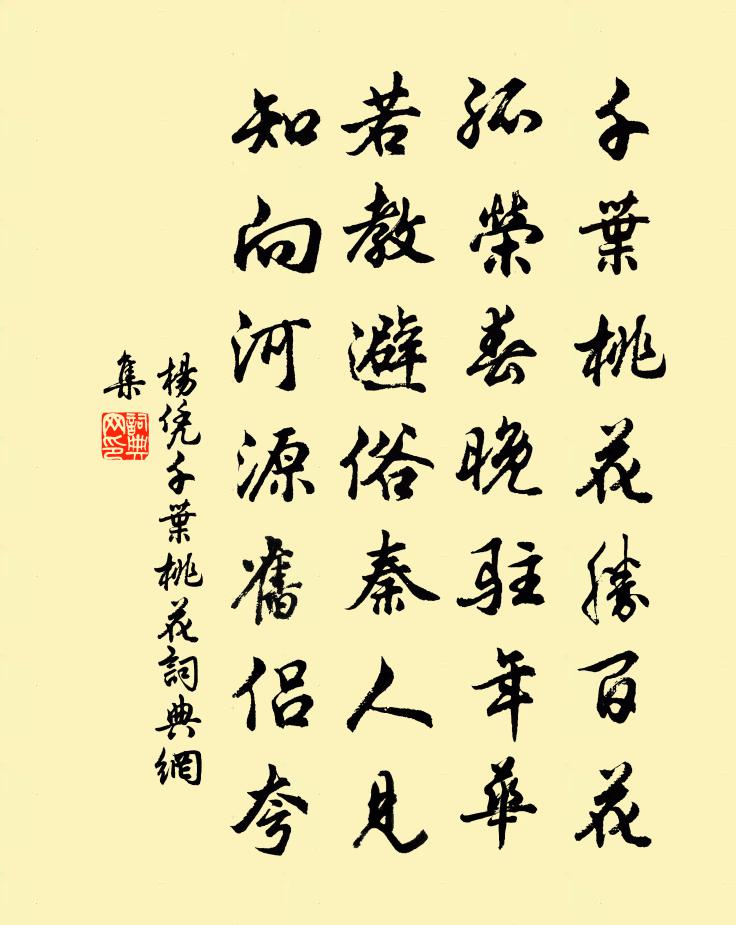 千葉桃花勝百花
孤榮春晚駐年華
若教避俗秦人見
知向河源舊侣夸
楊凭千葉桃花詞典網
集
詞典
网印